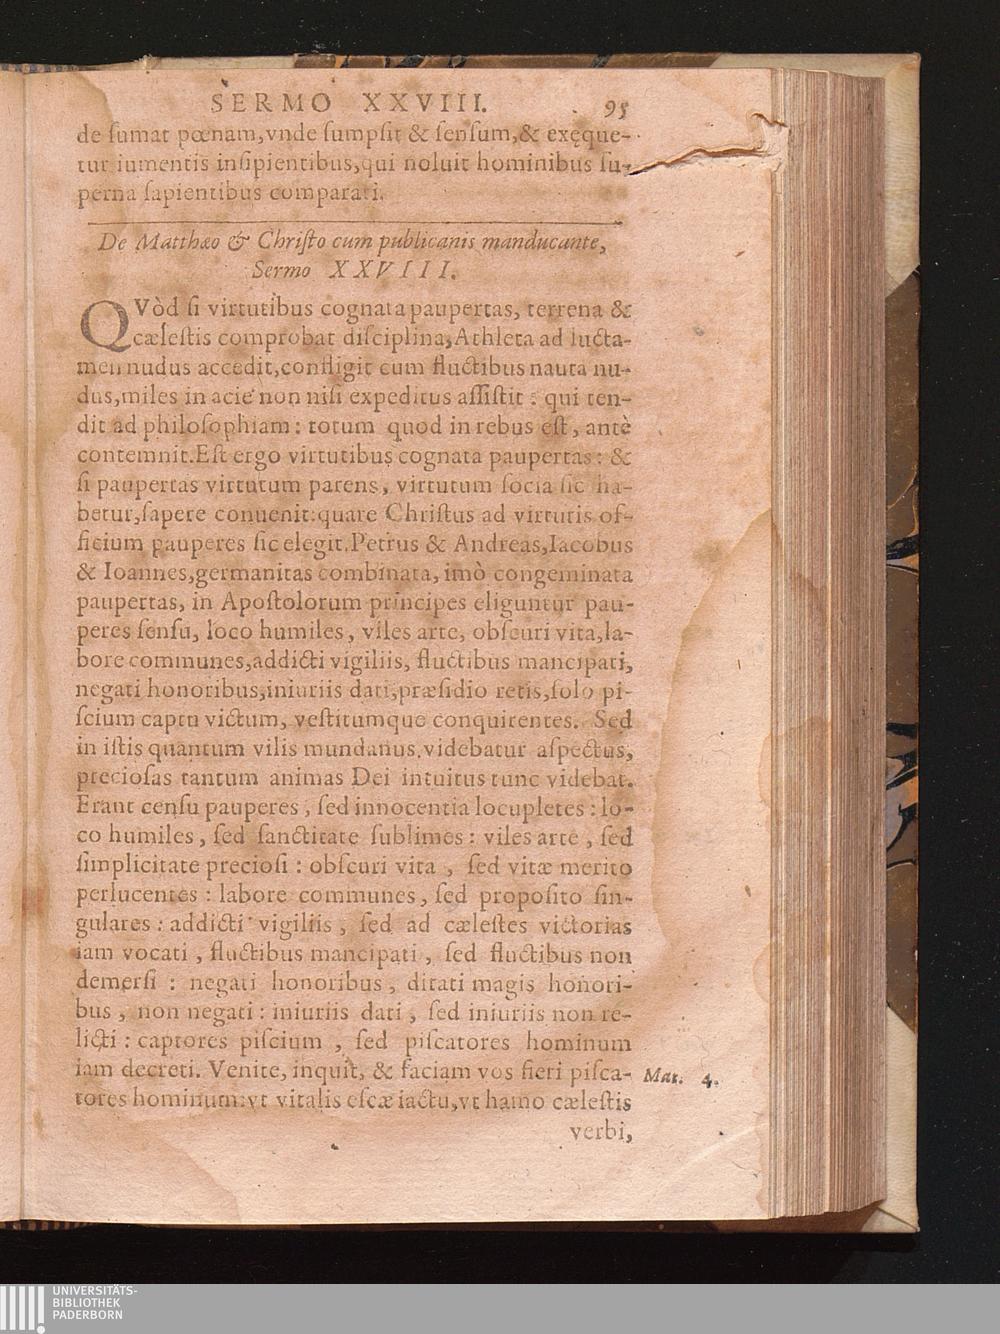 SERMO XXVIII. 95
de sumat pœnam,vnde sumpsit & sensum,& exęque-
tur iumentis insipientibus,qui noluit hominibus su-
perna sapientibus comparari.
De Matthæo & Christo cum publicanis manducante,
Sermo XXVIII.
QVòd si virtutibus cognata paupertas, terrena &
cælestis comprobat disciplina,Athleta ad lucta-
men nudus accedit,confligit cum fluctibus nauta nu-
dus,miles in acie non nisi expeditus assistit: qui ten-
dit ad philosophiam: totum quod in rebus est, antè
contemnit.Est ergo virtutibus cognata paupertas: &
si paupertas virtutum parens, virtutum socia sic ha-
betur,sapere conuenit:quare Christus ad virtutis of-
ficium pauperes sic elegit.Petrus & Andreas,Iacobus
& Ioannes,germanitas combinata, imò congeminata
paupertas, in Apostolorum principes eliguntur pau-
peres sensu, loco humiles, viles arte, obscuri vita,la-
bore communes,addicti vigiliis, fluctibus mancipati,
negati honoribus,iniuriis dati,præsidio retis,solo pi-
scium captu victum, vestitumque conquirentes. Sed
in istis quantum vilis mundanus videbatur aspectus,
preciosas tantum animas Dei intuitus tunc videbat.
Erant censu pauperes, sed innocentia locupletes: lo-
co humiles, sed sanctitate sublimes: viles arte, sed
simplicitate preciosi: obscuri vita, sed vitæ merito
perlucentes: labore communes, sed proposito sin-
gulares: addicti vigiliis, sed ad cælestes victorias
iam vocati, fluctibus mancipati, sed fluctibus non
demersi: negati honoribus, ditati magis honori-
bus, non negati: iniuriis dati, sed iniuriis non re-
licti: captores piscium, sed piscatores hominum
iam decreti. Venite, inquit, & faciam vos fieri pisca- Mat. 4.
tores hominum:vt vitalis escæ iactu,vt hamo cælestis
verbi,
UNIVERSITÄTS-
BIBLIOTHEK
PADERBORN